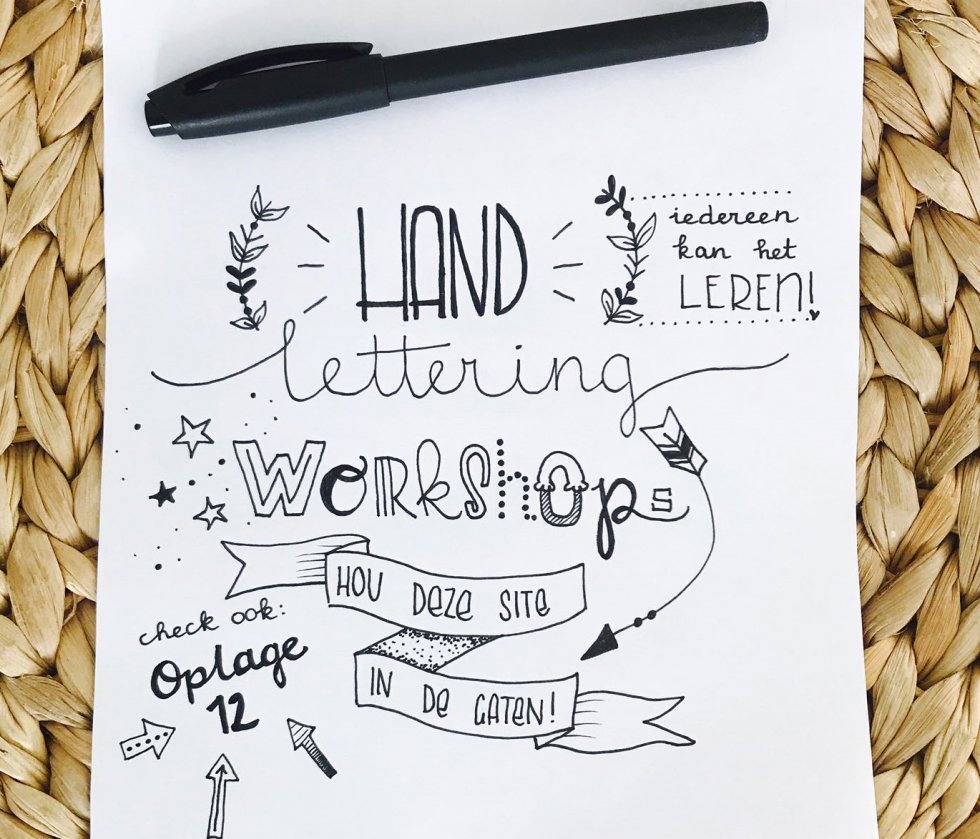 HAND
iedereen
kan het
LEREN!
lettering
Workshops
HOU DEZE SITE
IN DE GATEN!
check ook:
Oplage
12